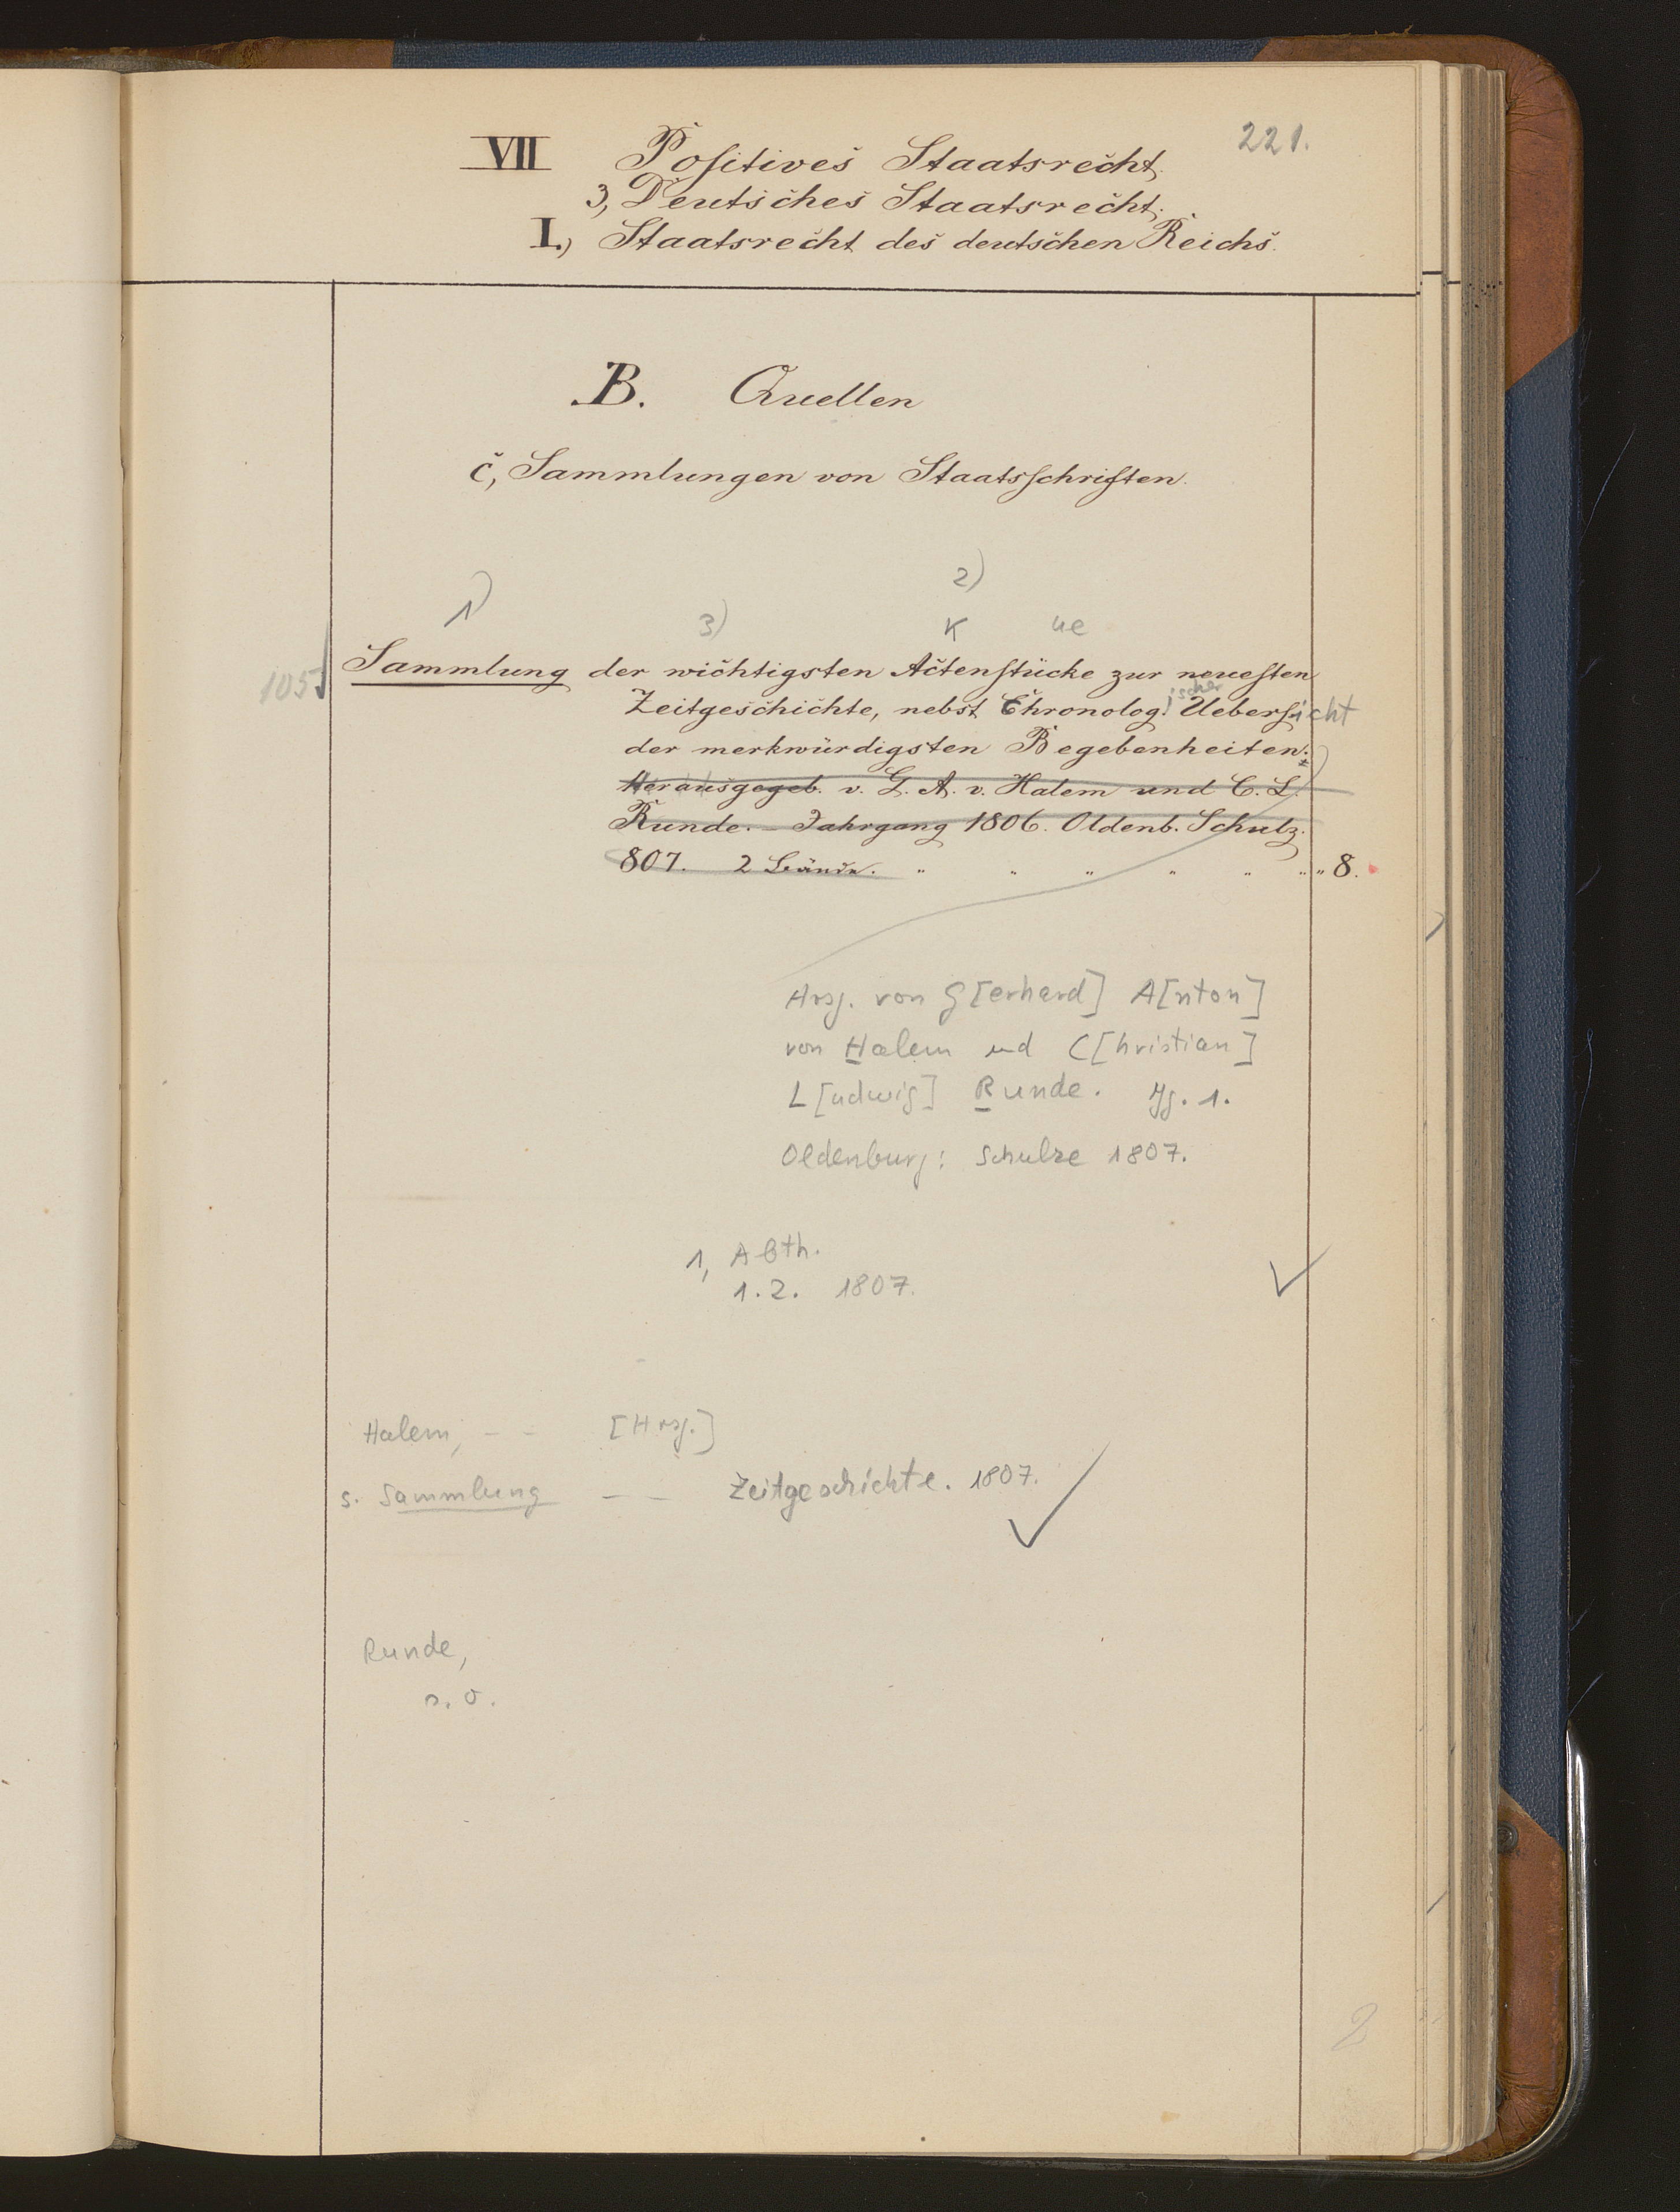 221.
VII Positives Staatsrecht.
3, Deutsches Staatsrecht.
I.) Staatsrecht des deutschen Reichs.
B. Quellen
c, Sammlungen von Staatsschriften.
2)
1) 3) K ue
105 Sammlung der wichtigsten Actenstücke zur neuesten
Zeitgeschichte, nebst Chronolog. ischer Uebersicht
der merkwürdigsten Begebenheiten.
Herausgegeb. v. G. A. v. Halem und C. L.
Runde. - Jahrgang 1806. Oldenb. Schulz.
807. 2 Bände. " " " " " " " 8.
Hrsg. von G[erhard] A[nton]
von Halem und C[hristian]
L[udwig] Runde. Jg. 1.
Oldenburg: Schulze 1807.
1, Abth.
1.2. 1807.
Halem, - - [Hrsg.]
s. Sammlung - - Zeitgeschichte. 1807.
Runde,
s. o.
2